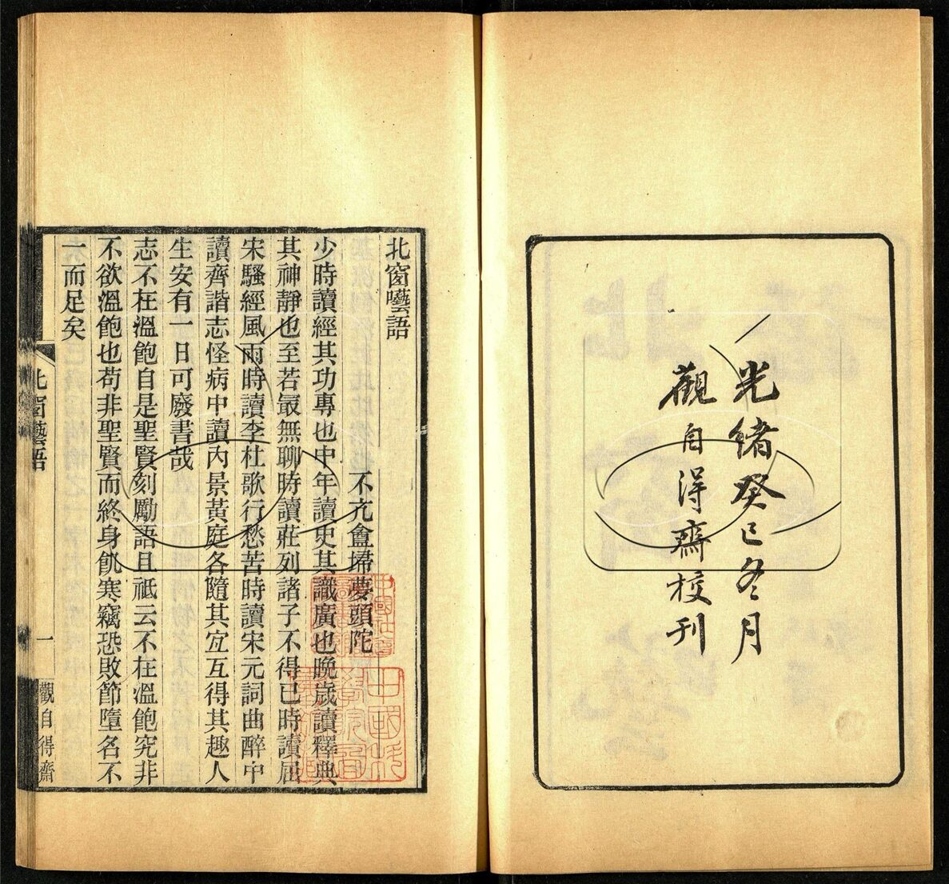 光緒癸巳冬月
觀自得齋校刊
北窗囈語
不亢盦埽夢頭陀
少時讀經其功專也中年讀史其識廣也晚歲讀釋典
其神靜也至若最無聊時讀莊列諸子不得已時讀屈
宋騷經風雨時讀李杜歌行愁苦時讀宋元詞曲醉中
讀齊諧志怪病中讀內景黃庭各隨其宜互得其趣人
生安有一日可廢書哉
志不在溫飽自是聖賢刻勵語且祗云不在溫飽究非
不欲溫飽也苟非聖賢而終身飢寒竊恐敗節墮名不
一而足矣
北窗囈語
一
觀自得齋